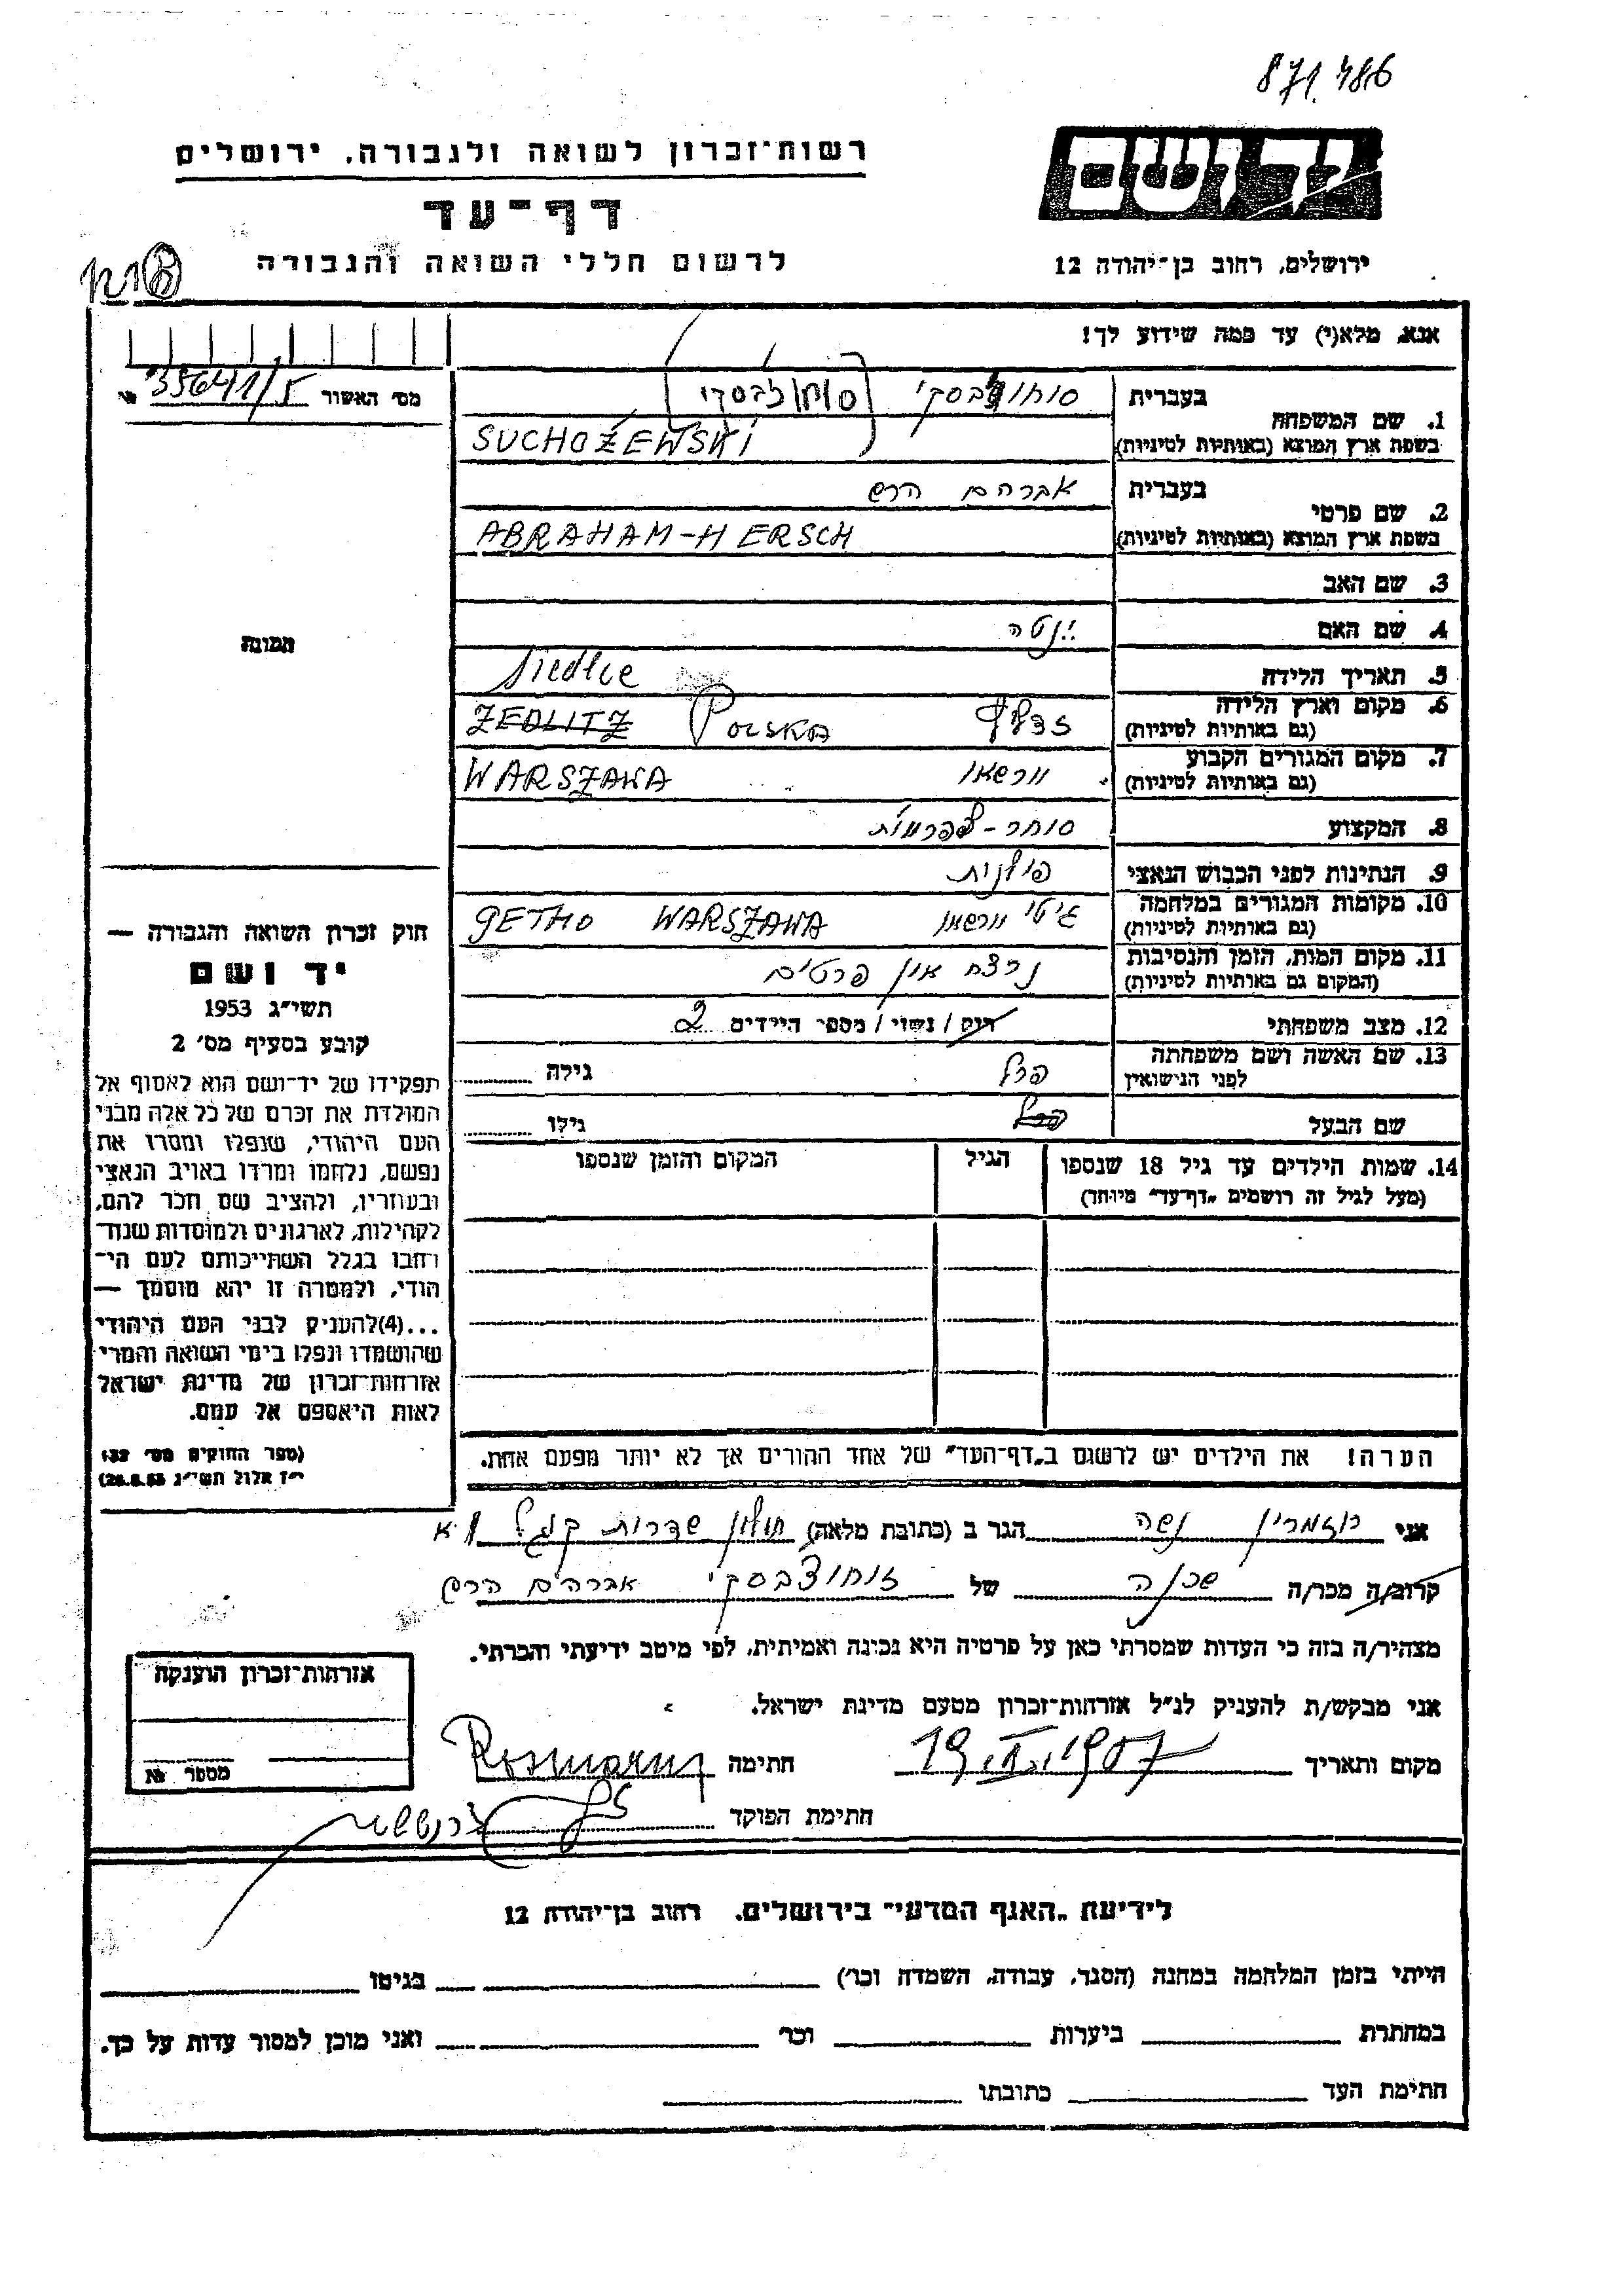 871.486
יד ושם
רשות־זכרון לשואה ולגבורה, ירושלים
דף־עד
לרשום חללי השואה והגבורה
ירושלים, רחוב בן־יהודה 12
אנא, מלא(י) עד כמה שידוע לך!
מס׳ האשור 35641/5 №
תמונה
1. שם המשפחה
בעברית סוחוז'בסקי (סוחוז'בסקי)
בשפת ארץ המוצא (באותיות לטיניות) SUCHOŻEWSKI
2. שם פרטי
בעברית אברהם הרש
בשפת ארץ המוצא (באותיות לטיניות) ABRAHAM-HERSCH
3. שם האב
4. שם האם ינטה
5. תאריך הלידה
Siedlce
6. מקום וארץ הלידה
(גם באותיות לטיניות) ZEDLITZ POLSKA
7. מקום המגורים הקבוע ורשאו
(גם באותיות לטיניות) WARSZAWA
8. המקצוע סוחר -
9. הנתינות לפני הכבוש הנאצי פולנית
10. מקומות המגורים במלחמה גיטו ורשאו
(גם באותיות לטיניות) GETHO WARSZAWA
11. מקום המות, הזמן והנסיבות נרצח אין פרטים
(המקום גם באותיות לטיניות)
12. מצב משפחתי רווק / נשוי / מספר הילדים 2
13. שם האשה ושם משפחתה
לפני הנישואין פרל גילה
שם הבעל פרל גילו
14. שמות הילדים עד גיל 18 שנספו הגיל המקום והזמן שנספו
(מעל לגיל זה רושמים „דף־עד״ מיוחד)
הערה! את הילדים יש לרשום ב„דף־העד״ של אחד ההורים אך לא יותר מפעם אחת.
חוק זכרון השואה והגבורה —
יד ושם
תשי״ג 1953
קובע בסעיף מס׳ 2
תפקידו של יד־ושם הוא לאסוף אל
המולדת את זכרם של כל אלה מבני
העם היהודי, שנפלו ומסרו את
נפשם, נלחמו ומרדו באויב הנאצי
ובעוזריו, ולהציב שם וזכר להם,
לקהילות, לארגונים ולמוסדות שנח־
רחבו בגלל השתייכותם לעם הי־
הודי, ולמטרה זו יהא מוסמך —
...(4) להעניק לבני העם היהודי
שהושמדו ונפלו בימי השואה והמרי
אזרחות־זכרון של מדינת ישראל
לאות היאספם אל עמם.
(ספר החוקים מס׳ 132
י״ז אלול תשי״ג 28.8.53)
אני רוזמרין נשה הגר ב (כתובת מלאה) חולון שדרות קוגל 1 א
קרוב/ה מכר/ה שכנה של זוחוצבסקי אברהם הרש
מצהיר/ה בזה כי העדות שמסרתי כאן על פרטיה היא נכונה ואמיתית, לפי מיטב ידיעתי והכרתי.
אני מבקש/ת להעניק לנ״ל אזרחות־זכרון מטעם מדינת ישראל.
מקום ותאריך 19.II.1957 חתימה Rosmaryn
חתימת הפוקד
אזרחות־זכרון הוענקה
מספר №
לידיעת „האגף המדעי״ בירושלים, רחוב בן־יהודה 12
הייתי בזמן המלחמה במחנה (הסגר, עבודה, השמדה וכו׳) בגיטו
במחתרת ביערות וכו׳ ואני מוכן למסור עדות על כך.
חתימת העד כתובתו